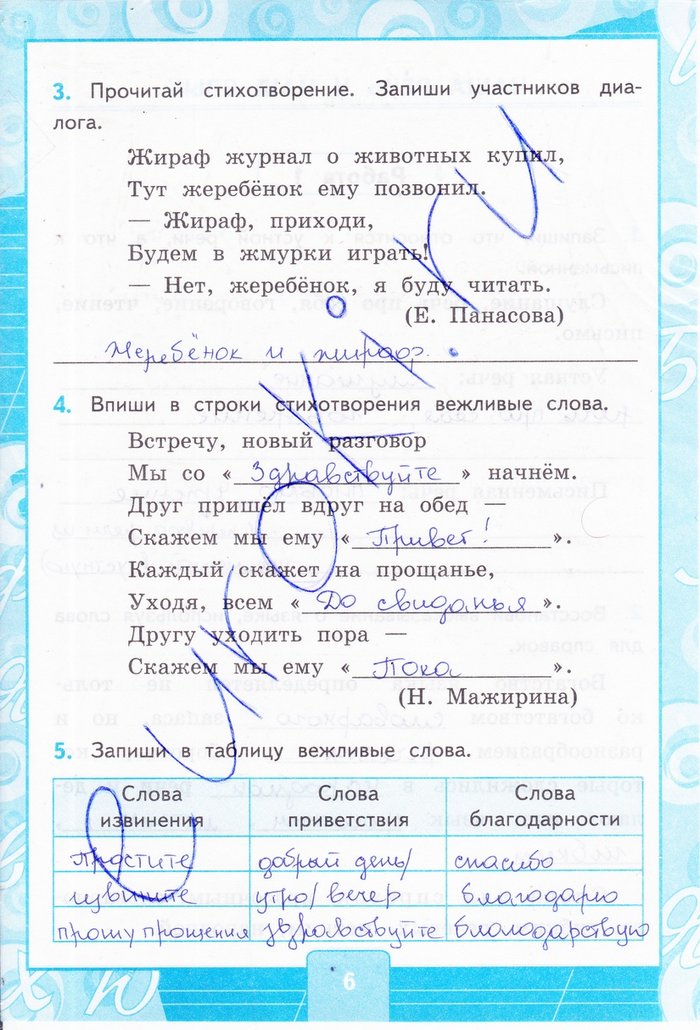 3. Прочитай стихотворение. Запиши участников диа-
лога.
Жираф журнал о животных купил,
Тут жеребёнок ему позвонил.
— Жираф, приходи,
Будем в жмурки играть!
— Нет, жеребёнок, я буду читать.
(Е. Панасова)
Жеребёнок и жираф.
4. Впиши в строки стихотворения вежливые слова.
Встречу, новый разговор
Мы со «Здравствуйте» начнём.
Друг пришёл вдруг на обед —
Скажем мы ему «Привет!».
Каждый скажет на прощанье,
Уходя, всем «До свиданья».
Другу уходить пора —
Скажем мы ему «Пока».
(Н. Мажирина)
5. Запиши в таблицу вежливые слова.
Слова извинения
Слова приветствия
Слова благодарности
простите добрый день/ спасибо
извините утро/вечер благодарю
прошу прощения здравствуйте благодарствую
6